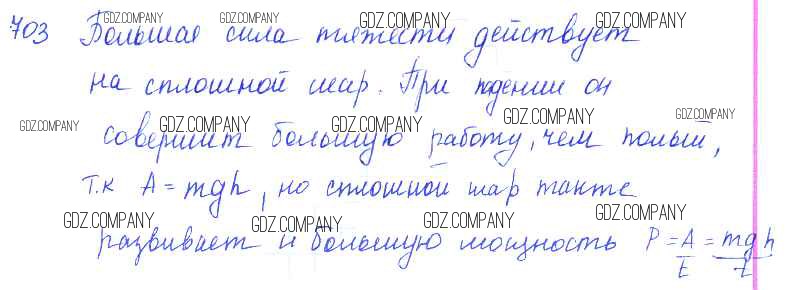 703 Большая сила тяжести действует
на сплошной шар. При падении он
совершит большую работу, чем полый,
т.к A = mgh, но сплошной шар также
развивает и большую мощность P = A/t = mgh/t
GDZ.COMPANY GDZ.COMPANY GDZ.COMPANY GDZ.COMPANY
GDZ.COMPANY GDZ.COMPANY GDZ.COMPANY GDZ.COMPANY GDZ.COMPANY
GDZ.COMPANY GDZ.COMPANY GDZ.COMPANY GDZ.COMPANY